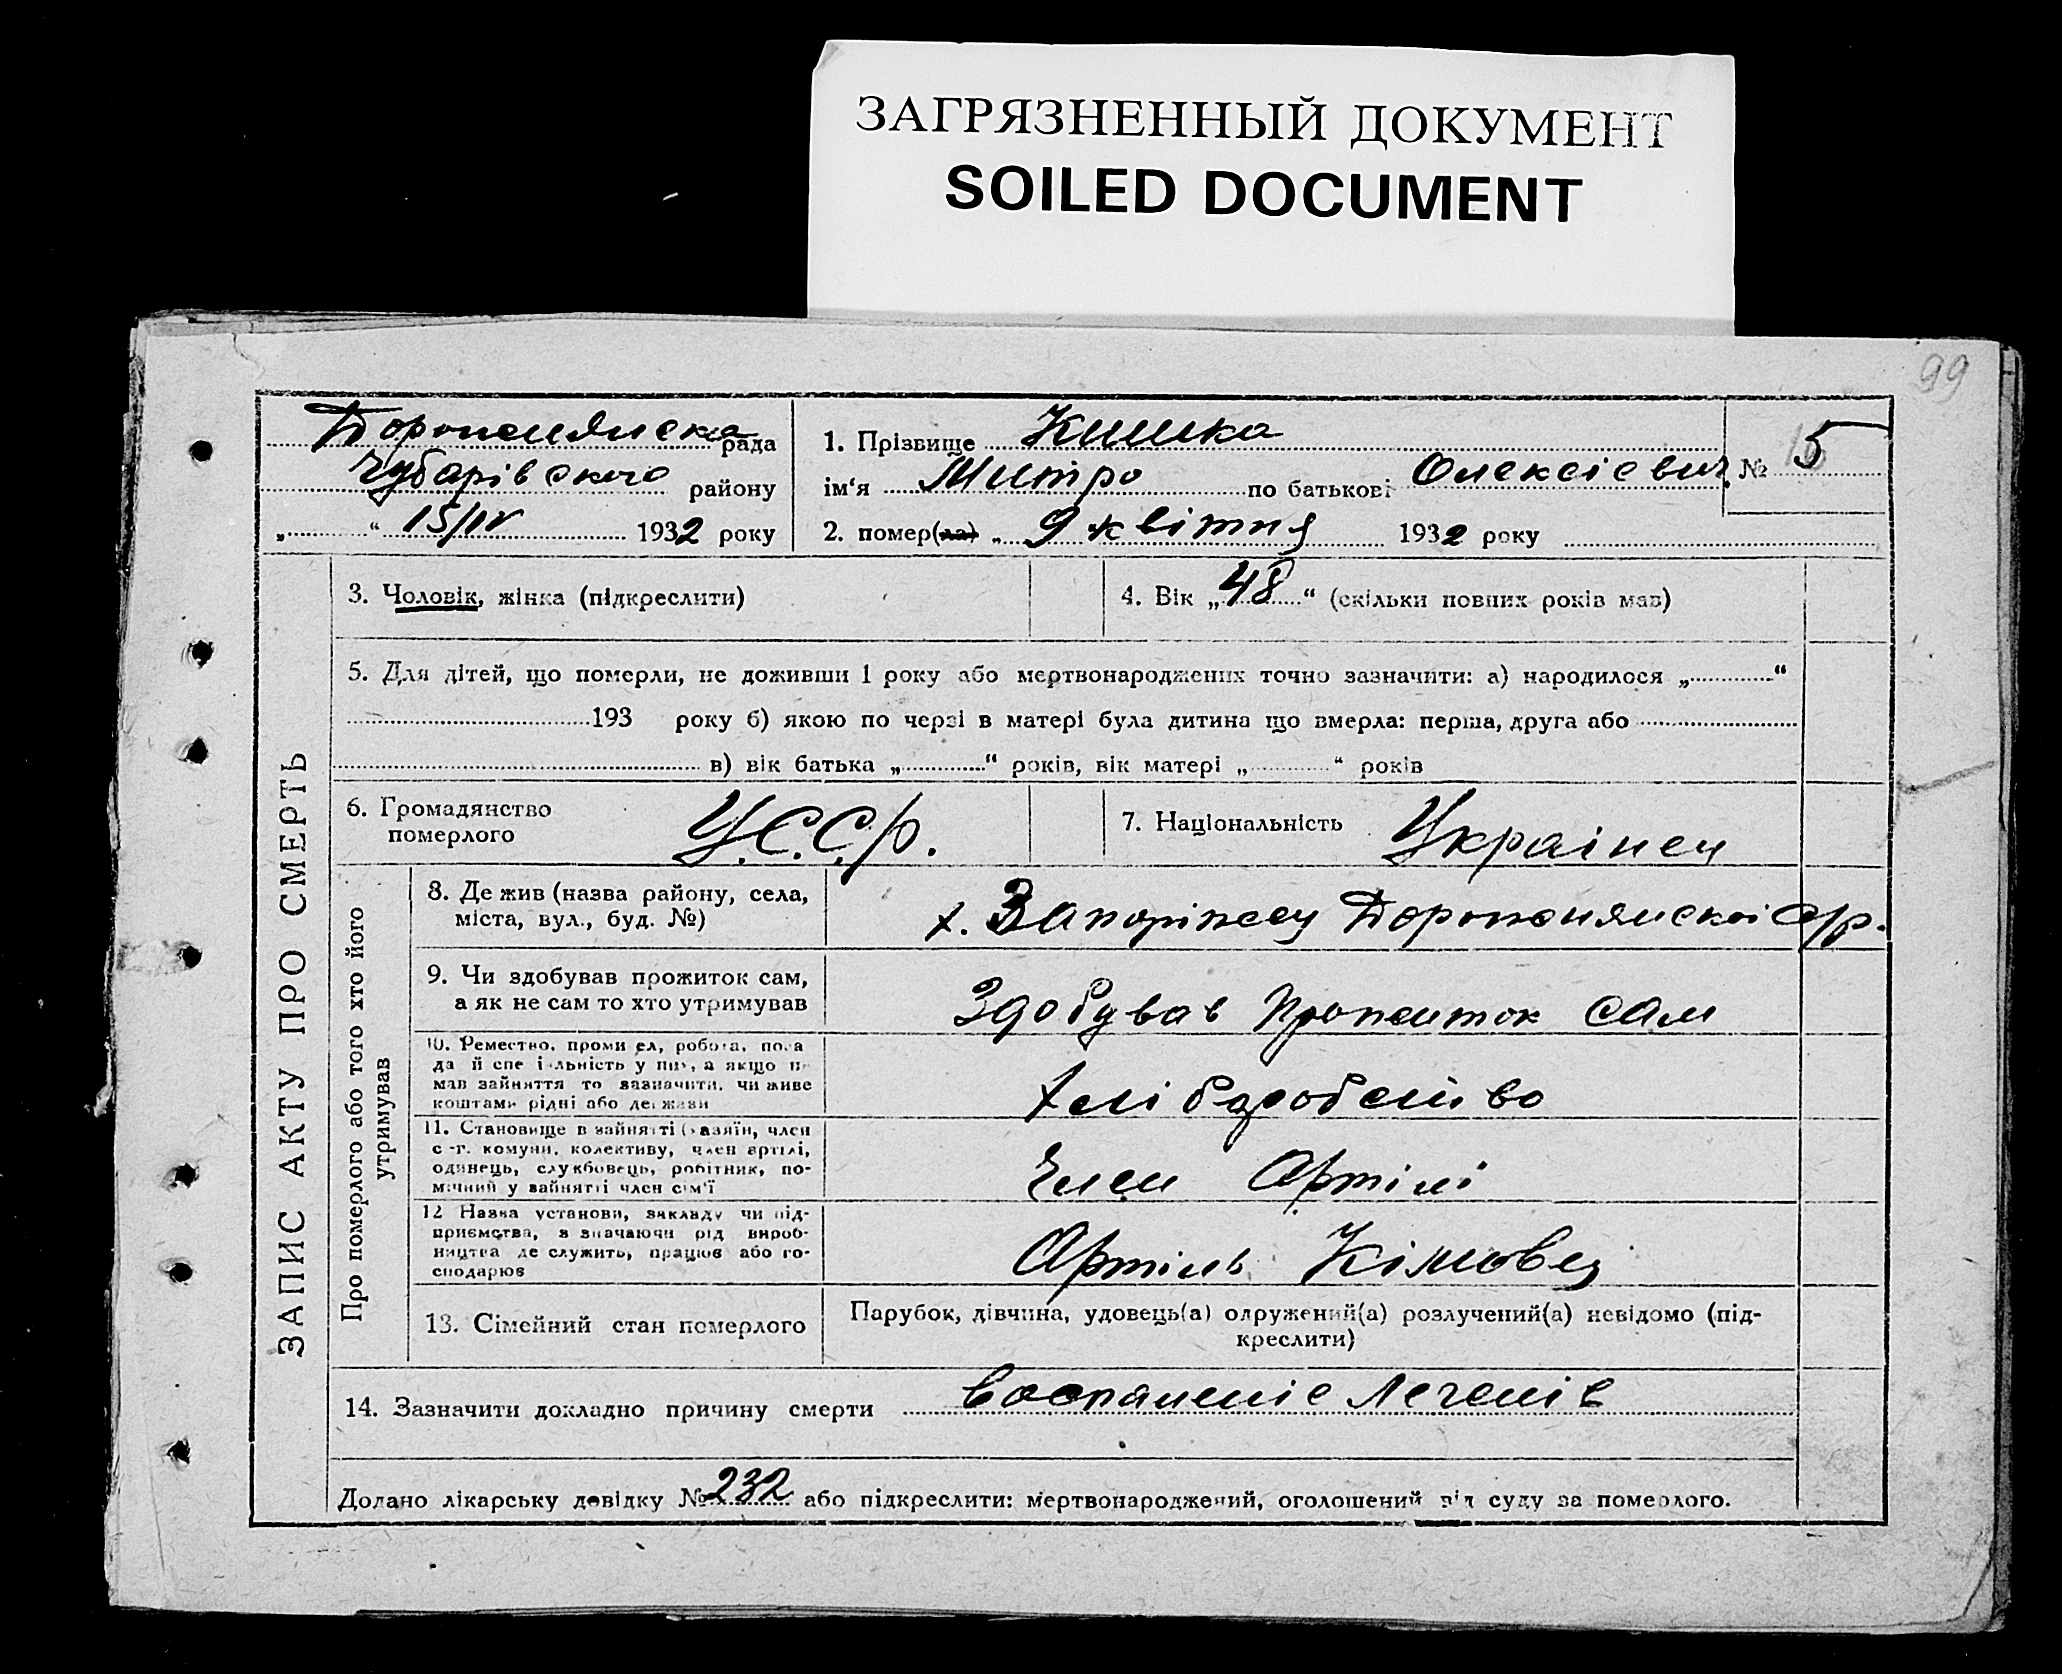 ЗАГРЯЗНЕННЫЙ ДОКУМЕНТ
SOILED DOCUMENT
99
Дорожнянська рада
Чубарівського району
„ “ 15/IV 1932 року
1. Прізвище Кишка
ім‘я Митро по батькові Олексієвич.
№ 5
2. помер(ла) „ 9 квітня 1932 року
ЗАПИС АКТУ ПРО СМЕРТЬ
3. Чоловік, жінка (підкреслити)
4. Вік „48“ (скільки повних років мав)
5. Для дітей, що померли, не доживши 1 року або мертвонароджених точно зазначити: а) народилося „ “
193 року б) якою по черзі в матері була дитина що вмерла: перша, друга або
в) вік батька „ “ років, вік матері „ “ років
6. Громадянство
померлого
У.С.С.р.
7. Національність Украінец
Про померлого або того хто його
утримував
8. Де жив (назва району, села,
міста, вул., буд. №)
х. Запоріжец Дорожнянскоі с/р.
9. Чи здобував прожиток сам,
а як не сам то хто утримував
Здобував прожиток сам
10. Ремество, проми ел, робота, поса
да й спе і льність у ни, а якщо н
мав зайняття то зазначити, чи живе
коштами рідні або держави
Хліборобство
11. Становище в зайнятті (хазяїн, член
с-г. комуни, колективу, член артілі,
одинець, службовець, робітник, по-
мічний у зайнятті член сім'ї
Член Артілі
12 Назва установи, закладу чи під-
приємства, з значаючи рід вироб-
ництва де служить, працює або го-
сподарює
Артіль Кімовец
13. Сімейний стан померлого
Парубок, дівчина, удовець(а) одружений(а) розлучений(а) невідомо (під-
креслити)
14. Зазначити докладно причину смерти воспаленіє Легенів
Додано лікарську довідку № 232 або підкреслити: мертвонароджений, оголошений від суду за померлого.